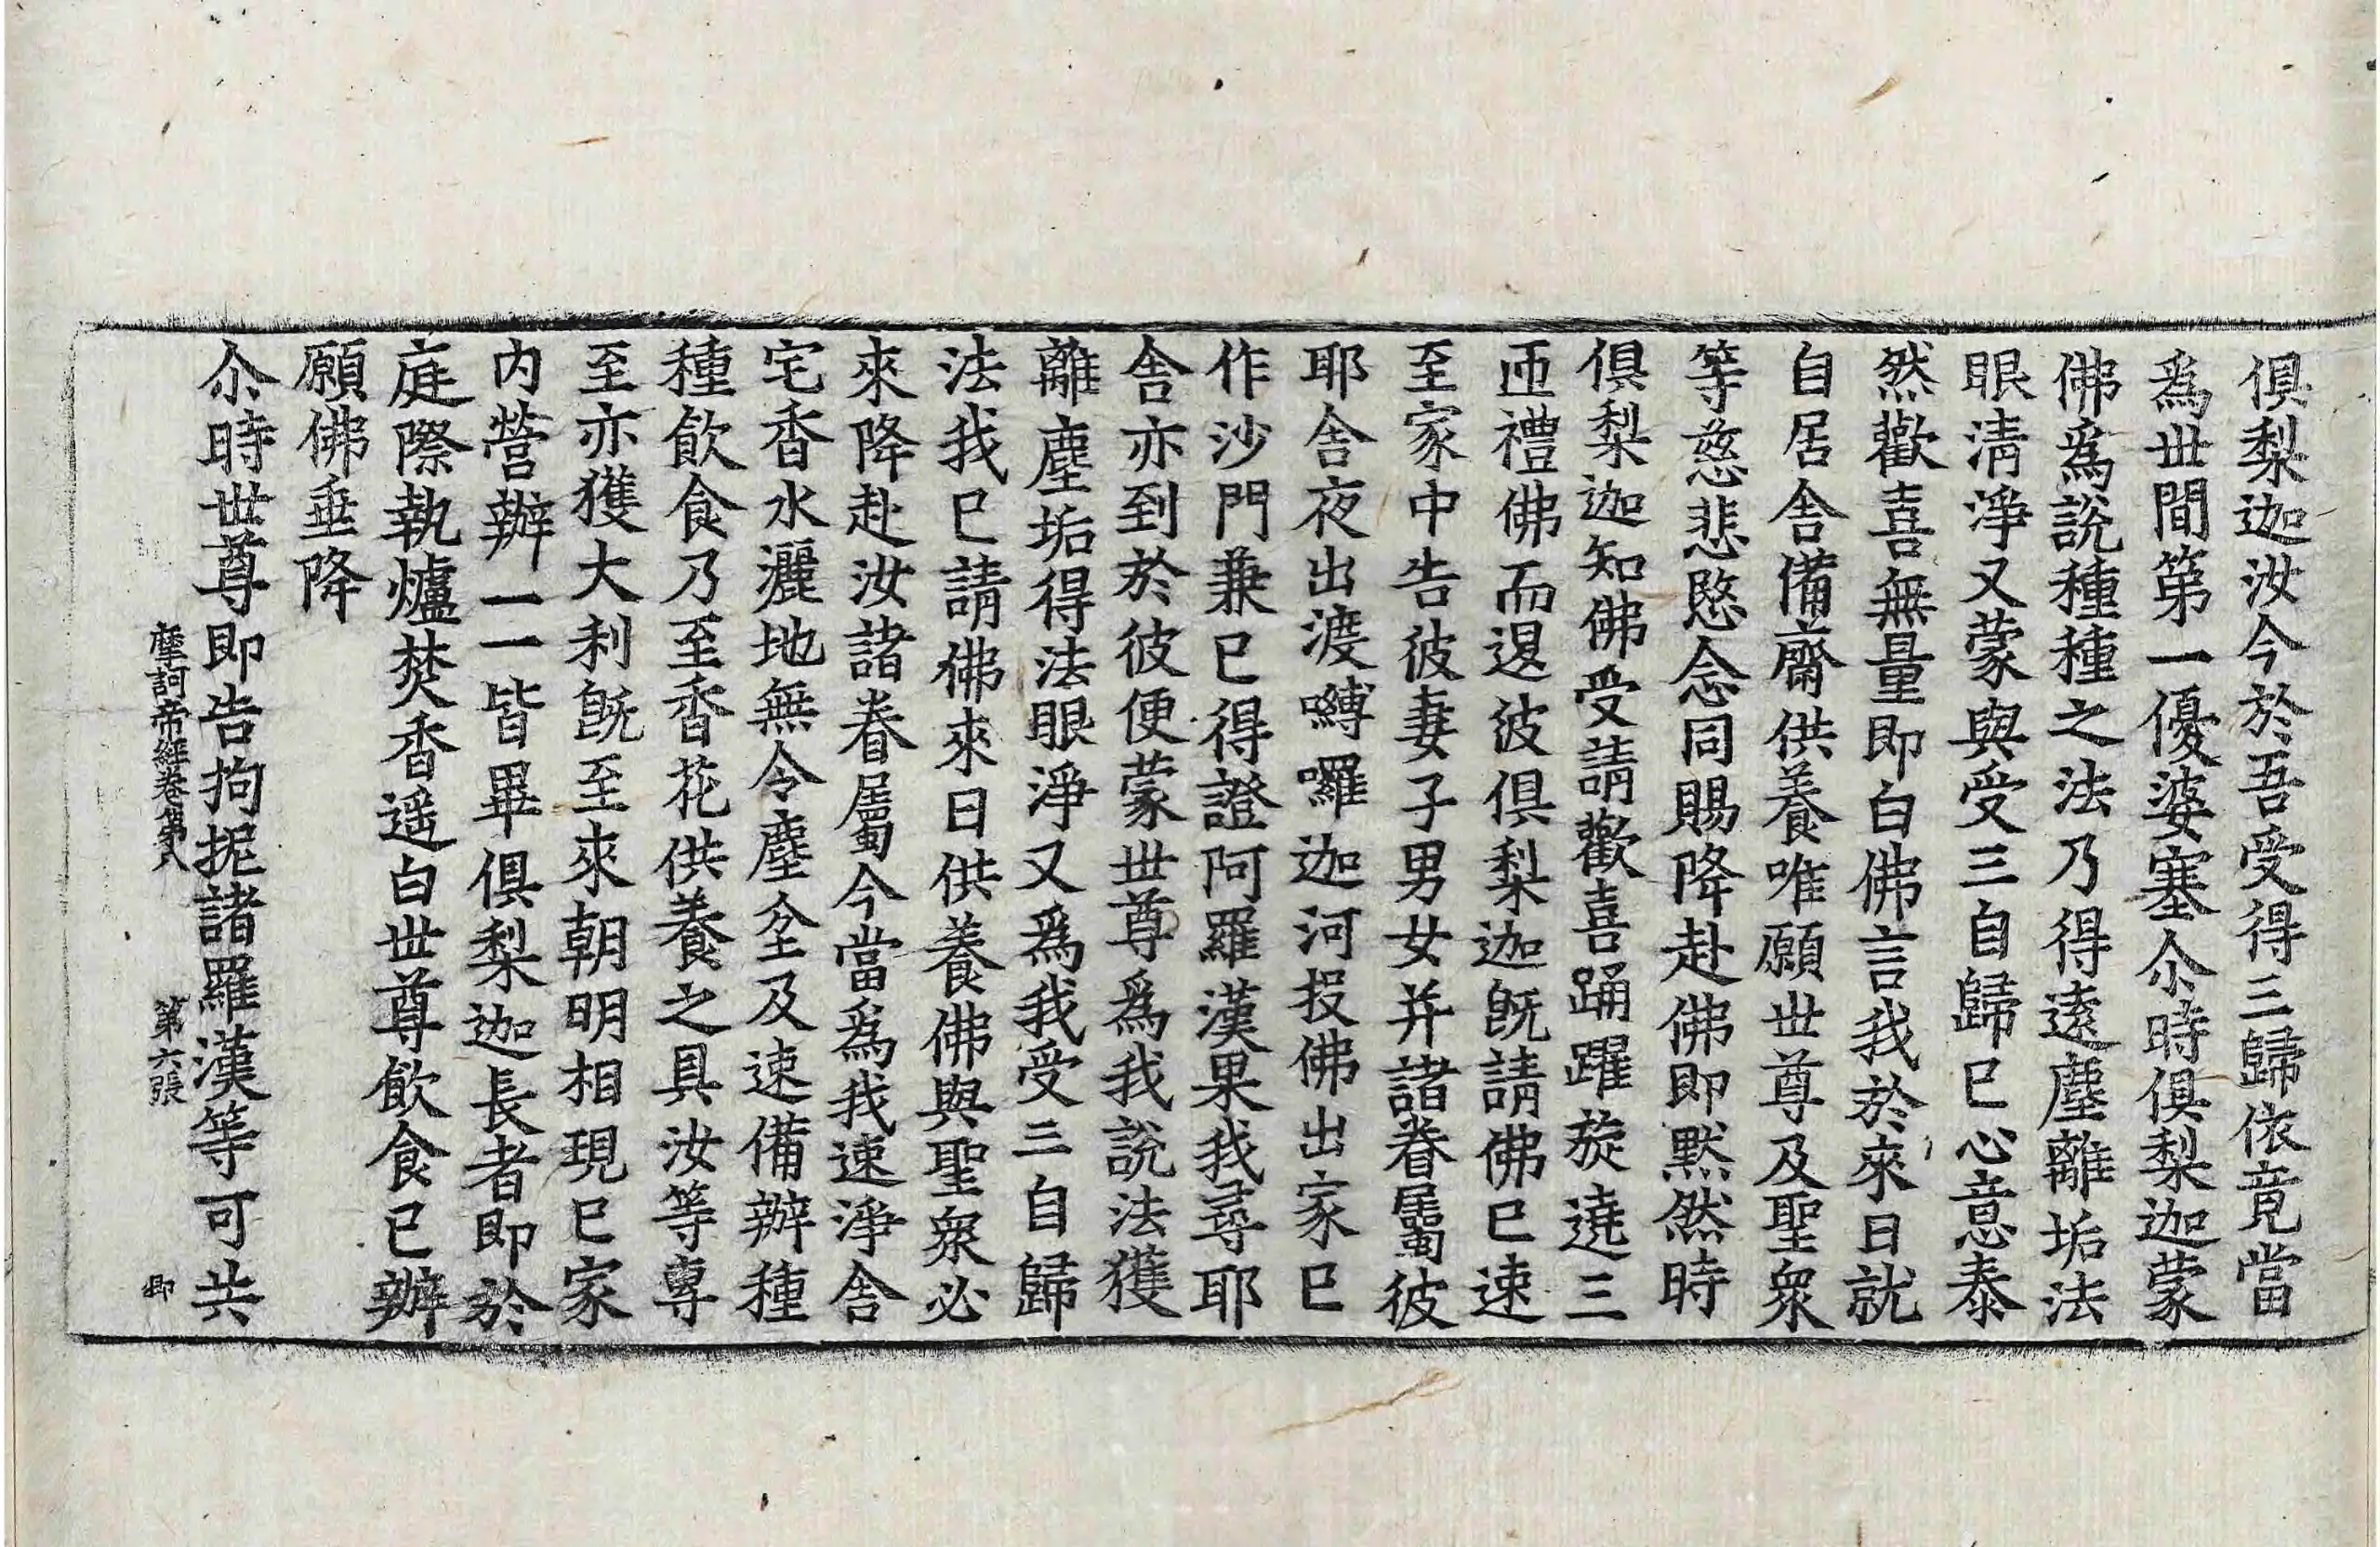 俱梨迦汝今於吾受得三歸依竟當
爲世間第一優婆塞尒時俱梨迦蒙
佛爲說種種之法乃得遠塵離垢法
眼淸淨又蒙與受三自歸已心意泰
然歡喜無量即白佛言我於來日就
自居舍備齋供養唯願世尊及聖衆
等慈悲愍念同賜降赴佛即黙然時
俱梨迦知佛受請歡喜踊躍旋遶三
匝禮佛而退彼俱梨迦旣請佛已速
至家中告彼妻子男女并諸眷屬彼
耶舍夜出渡嚩囉迦河投佛出家已
作沙門兼已得證阿羅漢果我尋耶
舍亦到於彼便蒙世尊爲我說法獲
離塵垢得法眼淨又爲我受三自歸
法我已請佛來日供養佛與聖衆必
來降赴汝諸眷屬今當爲我速淨舍
宅香水灑地無令塵坌及速備辦種
種飮食乃至香花供養之具汝等專
至亦獲大利旣至來朝明相現已家
内營辦一一皆畢俱梨迦長者即於
庭際執爐焚香遥白世尊飮食已辦
願佛垂降
尒時世尊即告拘抳諸羅漢等可共
摩訶帝經卷第八 第六張 即